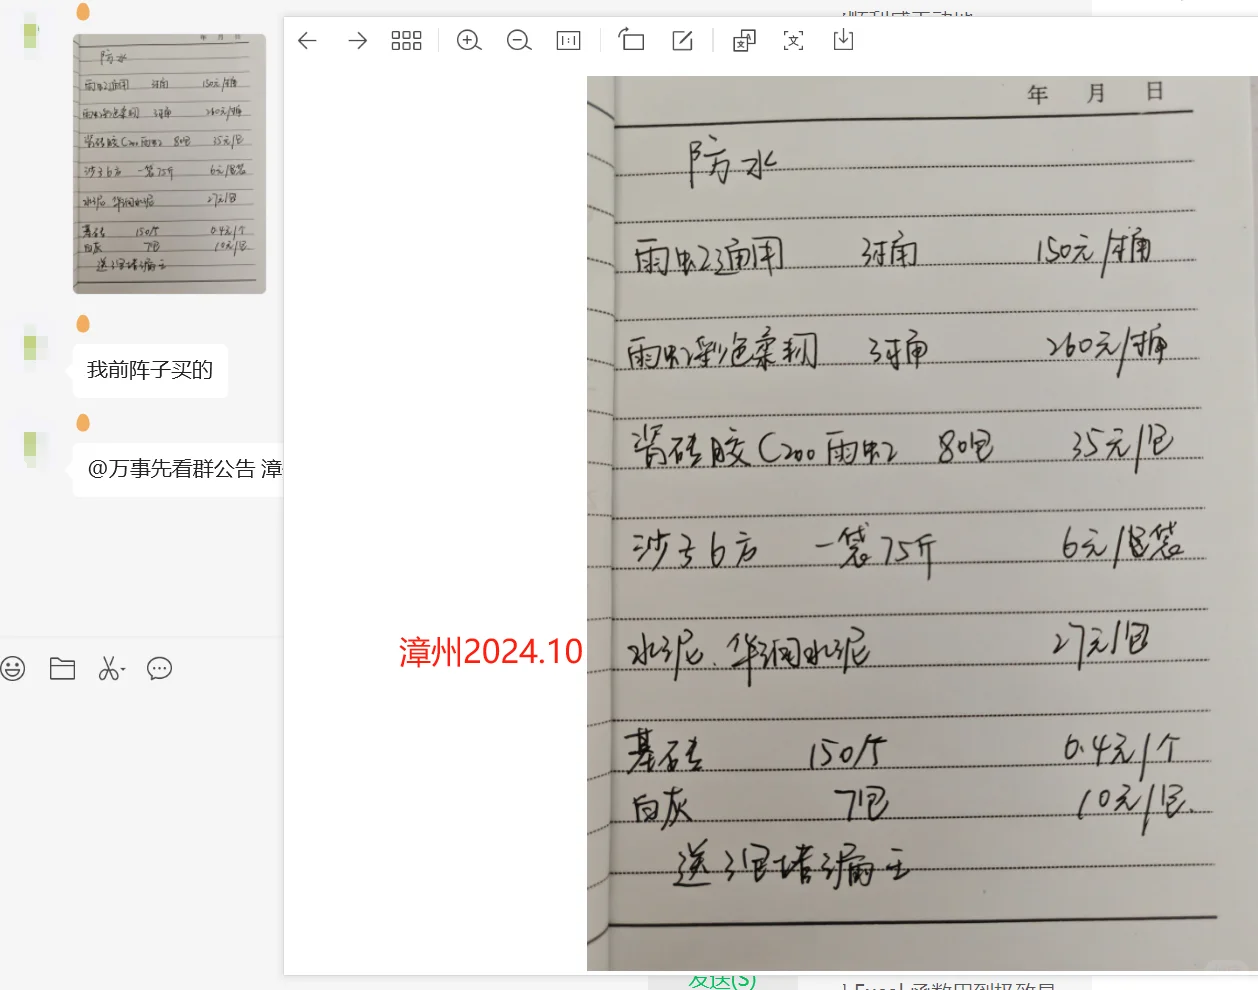 我前阵子买的
@万事先看群公告 漳
漳州2024.10
年 月 日
防水
雨虫2通用 3桶 150元/桶
雨虫2彩色柔韧 3桶 260元/桶
瓷砖胶C200雨虫2 80包 35元/包
沙子6方 一袋75斤 6元/袋
水泥、华润水泥 27元/包
基砖 150个 0.4元/个
白灰 7包 10元/包.
送3包堵漏王
发送(S)